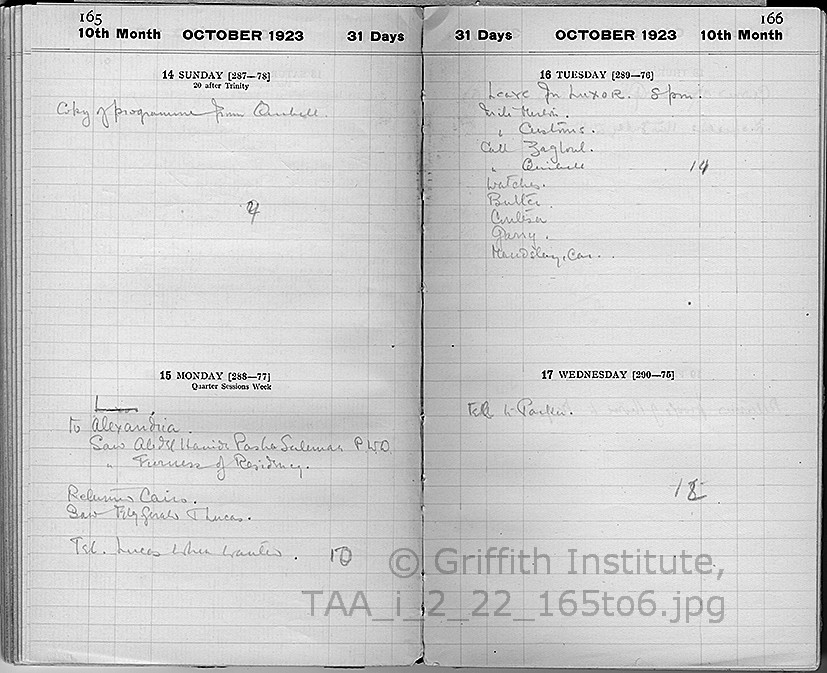 165
10th Month OCTOBER 1923 31 Days
14 SUNDAY [287—78]
20 after Trinity
Copy of programme from Quibell.
15 MONDAY [288—77]
Quarter Sessions Week
To Alexandria.
Saw Abd El Hamid Pasha Suleman P.W.D.
" Furness of Residency.
Returned Cairo.
Saw Fitzgerald & Lucas.
Tel. Lucas when wanted. 10
166
31 Days OCTOBER 1923 10th Month
16 TUESDAY [289—76]
Leave for Luxor. 8 pm.
Write Merton.
" Customs.
Call Zagloul.
" Quibell 14
Watches.
Butter.
17 WEDNESDAY [290—75]
Tel. to
18
© Griffith Institute,
TAA_i_2_22_165to6.jpg